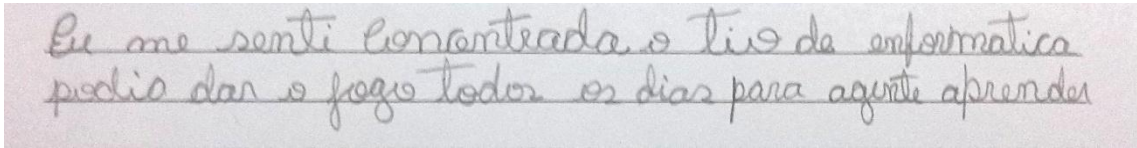 Eu me senti concentrada o tio da enformatica
podio dar o jogo todos os dias para agente aprender